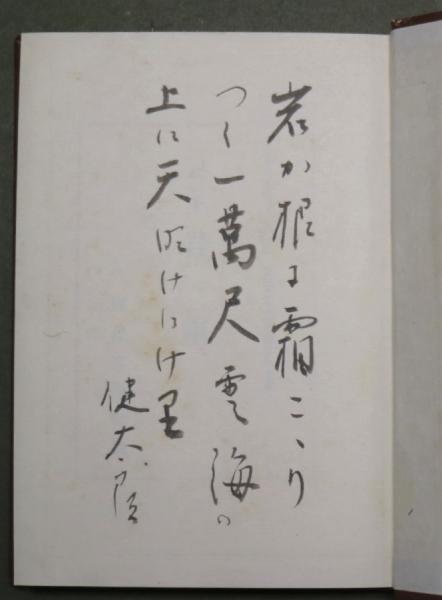 岩か根に霜こゝり
つく一萬尺雲海の
上に天明けにけ里
健太郎